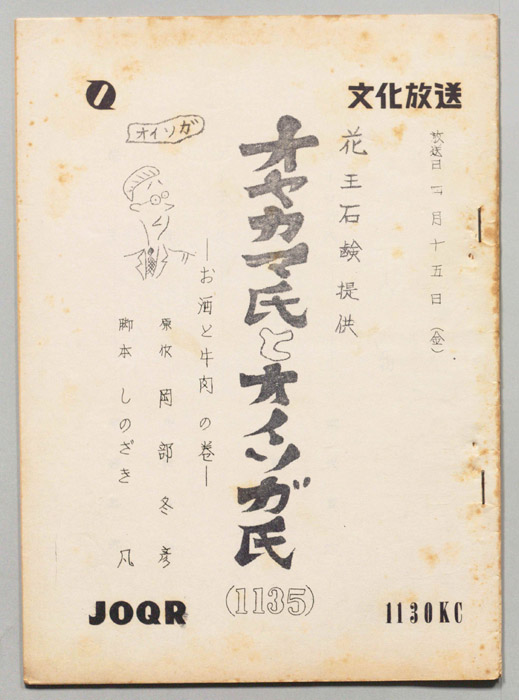 文化放送
放送日 四月十五日(金)
花王石鹸提供
オヤカマ氏とオイソガ氏
(1135)
―お酒と牛肉の巻―
原作 岡部冬彦
脚本 しのざき 凡
オイソガ
JOQR
1130KC